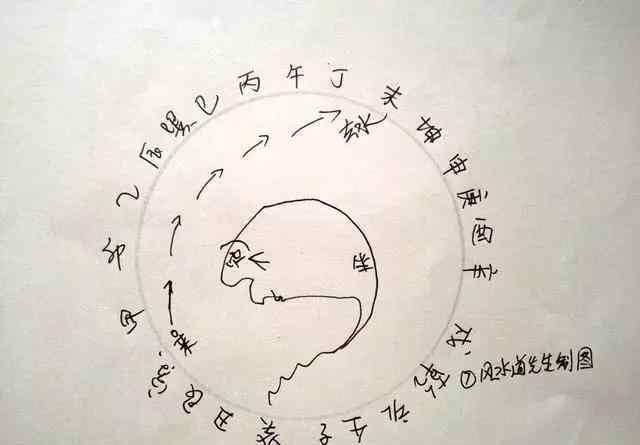 丙午丁未坤申庚酉辛
戌
乾
壬子癸丑艮
甲卯乙辰巽巳
来
去水
穴
①风水道先生制图